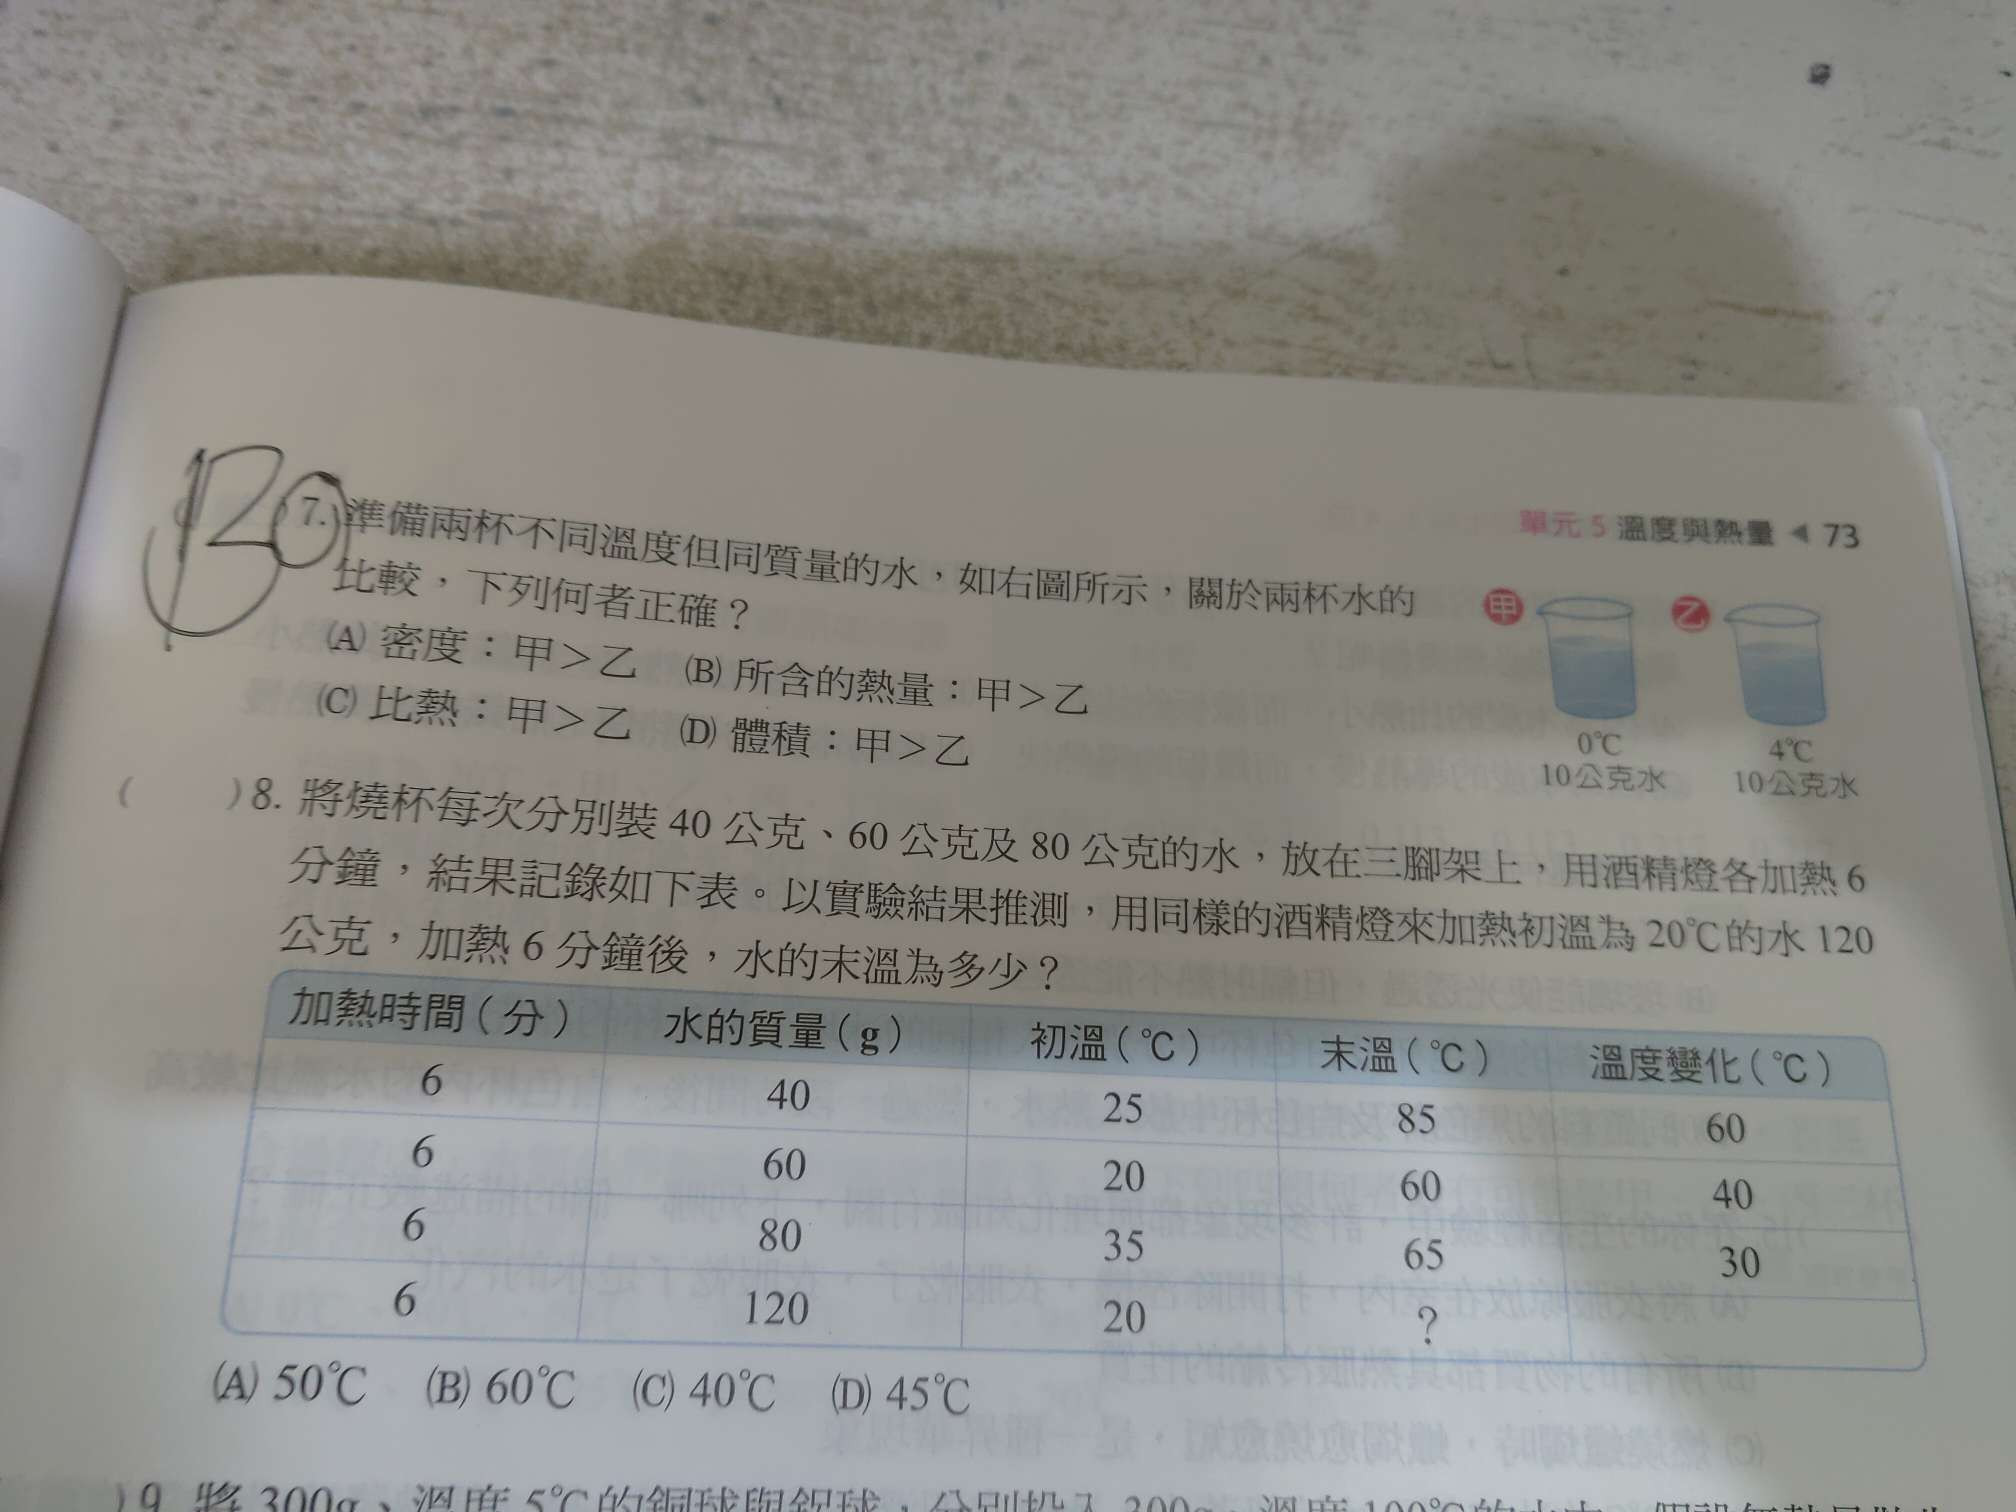 單元 5 溫度與熱量 ◀ 73
7. 準備兩杯不同溫度但同質量的水，如右圖所示，關於兩杯水的
比較，下列何者正確？
(A) 密度：甲＞乙 (B) 所含的熱量：甲＞乙
(C) 比熱：甲＞乙 (D) 體積：甲＞乙
甲 乙
0℃ 4℃
10公克水 10公克水
( )8. 將燒杯每次分別裝 40 公克、60 公克及 80 公克的水，放在三腳架上，用酒精燈各加熱 6
分鐘，結果記錄如下表。以實驗結果推測，用同樣的酒精燈來加熱初溫為 20℃的水 120
公克，加熱 6 分鐘後，水的末溫為多少？
加熱時間（分） 水的質量（g） 初溫（℃） 末溫（℃） 溫度變化（℃）
6 40 25 85 60
6 60 20 60 40
6 80 35 65 30
6 120 20 ?
(A) 50℃ (B) 60℃ (C) 40℃ (D) 45℃
)9. 將 300g、溫度 5℃的銅球與鋁球，分別投入 300g、溫度 100℃的水中